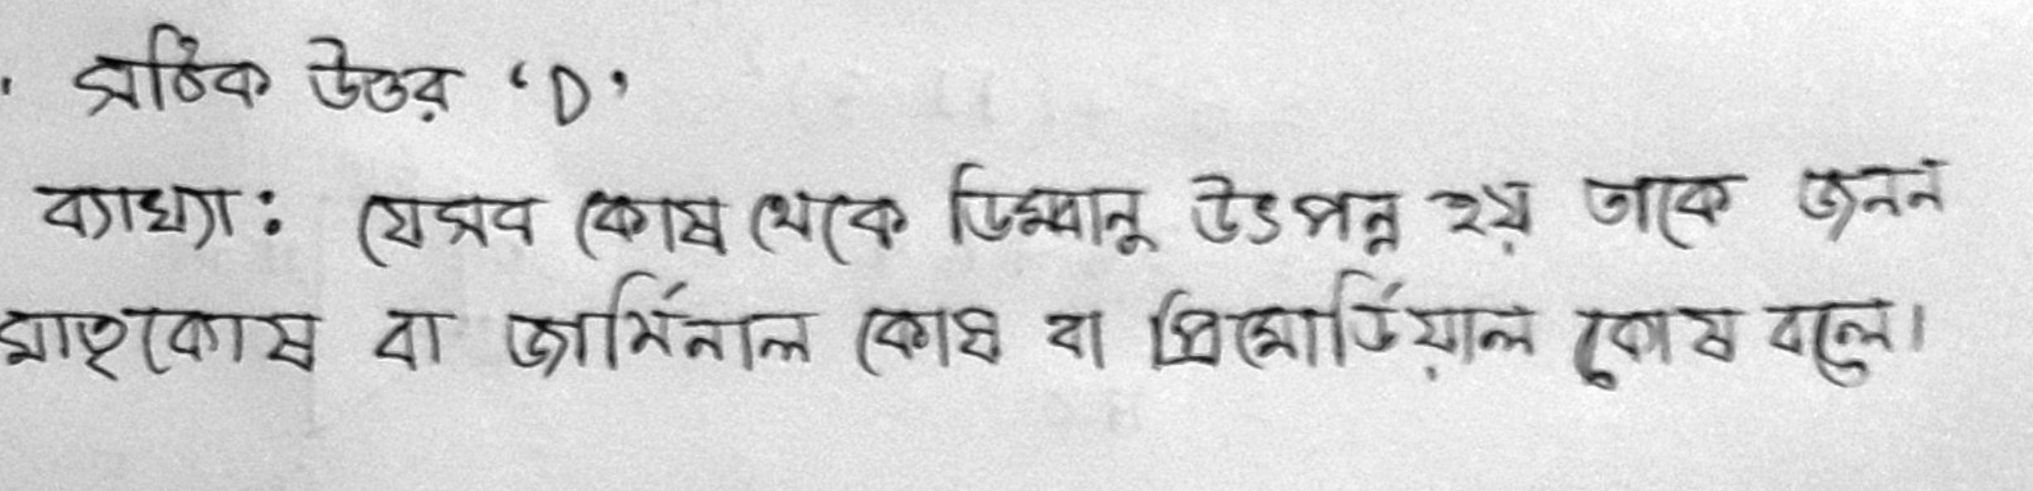 . সঠিক উত্তর ‘D’
ব্যাখ্যা: যেসব কোষ থেকে ডিম্বানু উৎপন্ন হয় তাকে জনন
মাতৃকোষ বা জার্মিনাল কোষ বা প্রিমোর্ডিয়াল কোষ বলে।